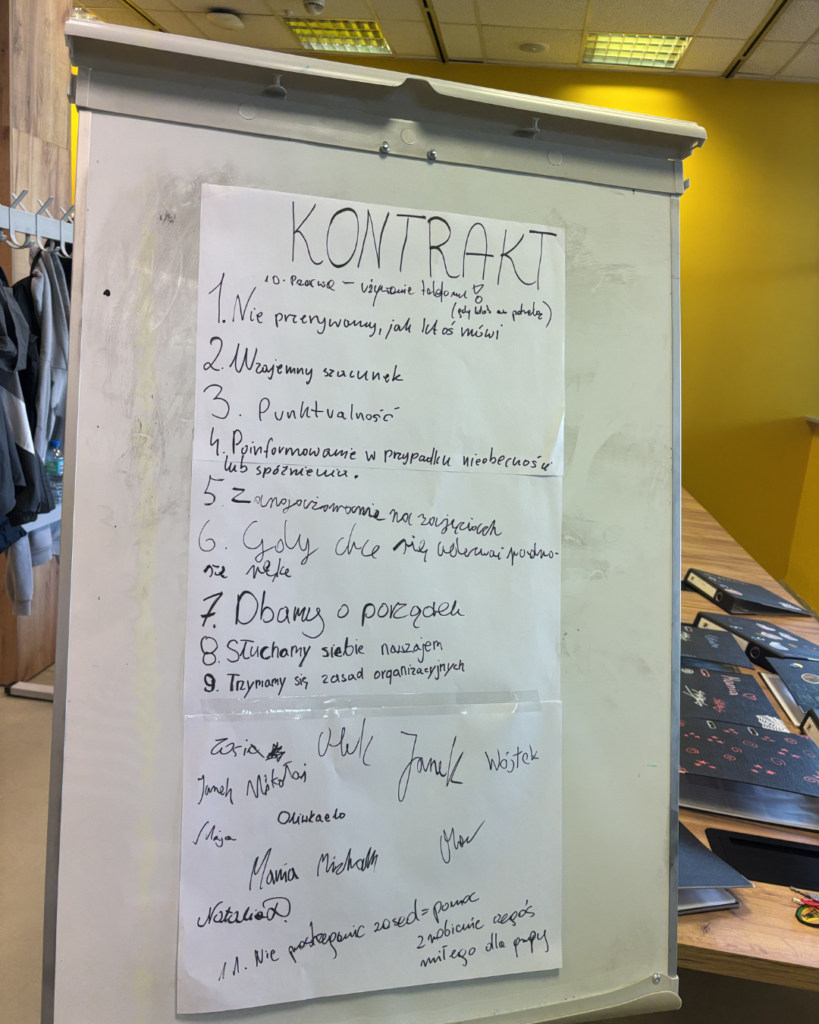 KONTRAKT
10. Przerwa – używanie telefonu!
(gdy ktoś ma potrzebę)
1. Nie przerywamy, jak ktoś mówi
2. Wzajemny szacunek
3. Punktualność
4. Poinformowanie w przypadku nieobecności
lub spóźnieniu.
5. Zaangażowanie na zajęciach
6. Gdy chce się odezwać podno-
sze rękę
7. Dbamy o porządek
8. Słuchamy siebie nawzajem
9. Trzymamy się zasad organizacyjnych
Zosia Olek Janek Wojtek
Janek Mikołaj
Maja Oliwka
Mania Michał
Natalia R.
11. Nie przestrzeganie zasad = pomoc
zrobienie czegoś
miłego dla grupy
Mania